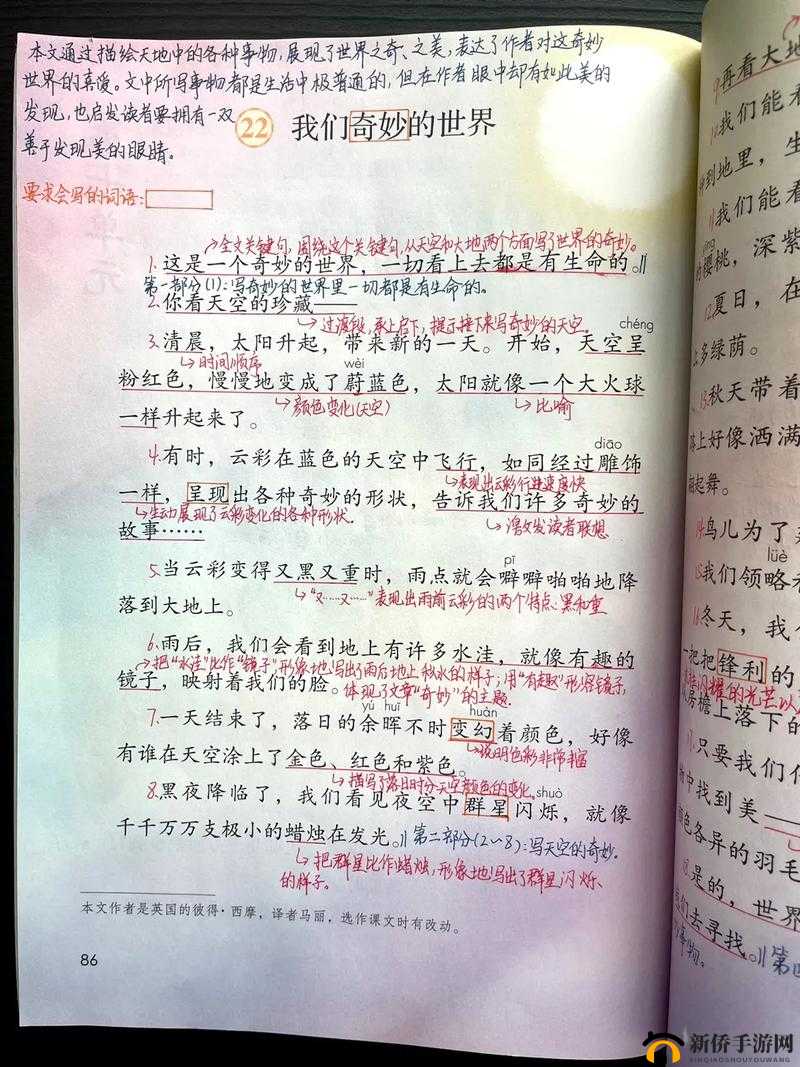 本文通过描绘天地中的各种事物,展现了世界之奇、之美,表达了作者对这奇妙
世界的真爱。文中所写事物都是生活中极普通的,但在作者眼中却有如此美的
发现,也启发读者要拥有一双
善于发现美的眼睛。
22 我们奇妙的世界
要求会写的词语:
全文关键句,围绕这个关键句,从天空和大地两个方面写了世界的奇妙。
1.这是一个奇妙的世界,一切看上去都是有生命的。
第一部分(1):写奇妙的世界里一切都是有生命的。
2.你看天空的珍藏——
过渡段,承上启下,提示接下来写奇妙的天空。
chéng
3.清晨,太阳升起,带来新的一天。开始,天空呈
时间顺序
wèi
粉红色,慢慢地变成了蔚蓝色,太阳就像一个大火球
颜色变化(天空)
比喻
一样升起来了。
diāo
4.有时,云彩在蓝色的天空中飞行,如同经过雕饰
表现出云彩行进速度快
一样,呈现出各种奇妙的形状,告诉我们许多奇妙的
生动展现了云彩变化的各种形状.
激发读者联想.
故事……
pī
5.当云彩变得又黑又重时,雨点就会噼噼啪啪地降
“又……又……”表现出雨前云彩的两个特点:黑和重
落到大地上。
6.雨后,我们会看到地上有许多水洼,就像有趣的
把“水洼”比作“镜子”形象地写出了雨后地上积水的样子;用“有趣”形容镜子,
镜子,映射着我们的脸。
体现了文章“奇妙”的主题.
yú huī huàn
7.一天结束了,落日的余晖不时变幻着颜色,好像
说明色彩非常丰富
有谁在天空涂上了金色、红色和紫色。
描写了落日时分天空颜色的变化
shuò
8.黑夜降临了,我们看见夜空中群星闪烁,就像
千千万万支极小的蜡烛在发光。
第二部分(2~8):写天空的奇妙.
把群星比作蜡烛,形象地写出了群星闪烁
的样子.
本文作者是英国的彼得·西摩,译者马丽,选作课文时有改动。
86
9.再看大地
我们能看
冲到地里,生
11我们能看
yīng
的樱桃,深紫
12夏日,在
多绿荫。
13秋天带着
路上好像洒满
翩起舞。
14鸟儿为了
lüè
15我们领略
16冬天,我
一把把锋利的
闪耀的光芒
房檐上落下的
只要我们
物中找到美——
颜色各异的羽毛
18是的,世界
们去寻找。
第四
事物。
新侨手游网
XINQIAOSHOUYOUWANG